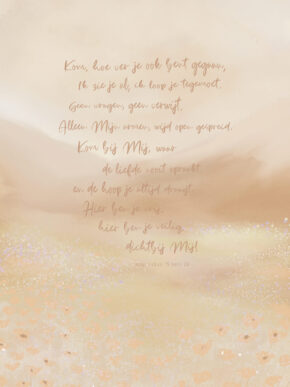 Kom, hoe ver je ook bent gegaan,
Ik zie je al, ik loop je tegemoet.
Geen vragen, geen verwijt,
Alleen Mijn armen, wijd open gespreid.
Kom bij Mij, waar
de liefde nooit opraakt
en de hoop je altijd draagt.
Hier ben je vrij,
hier ben je veilig,
dichtbij Mij!